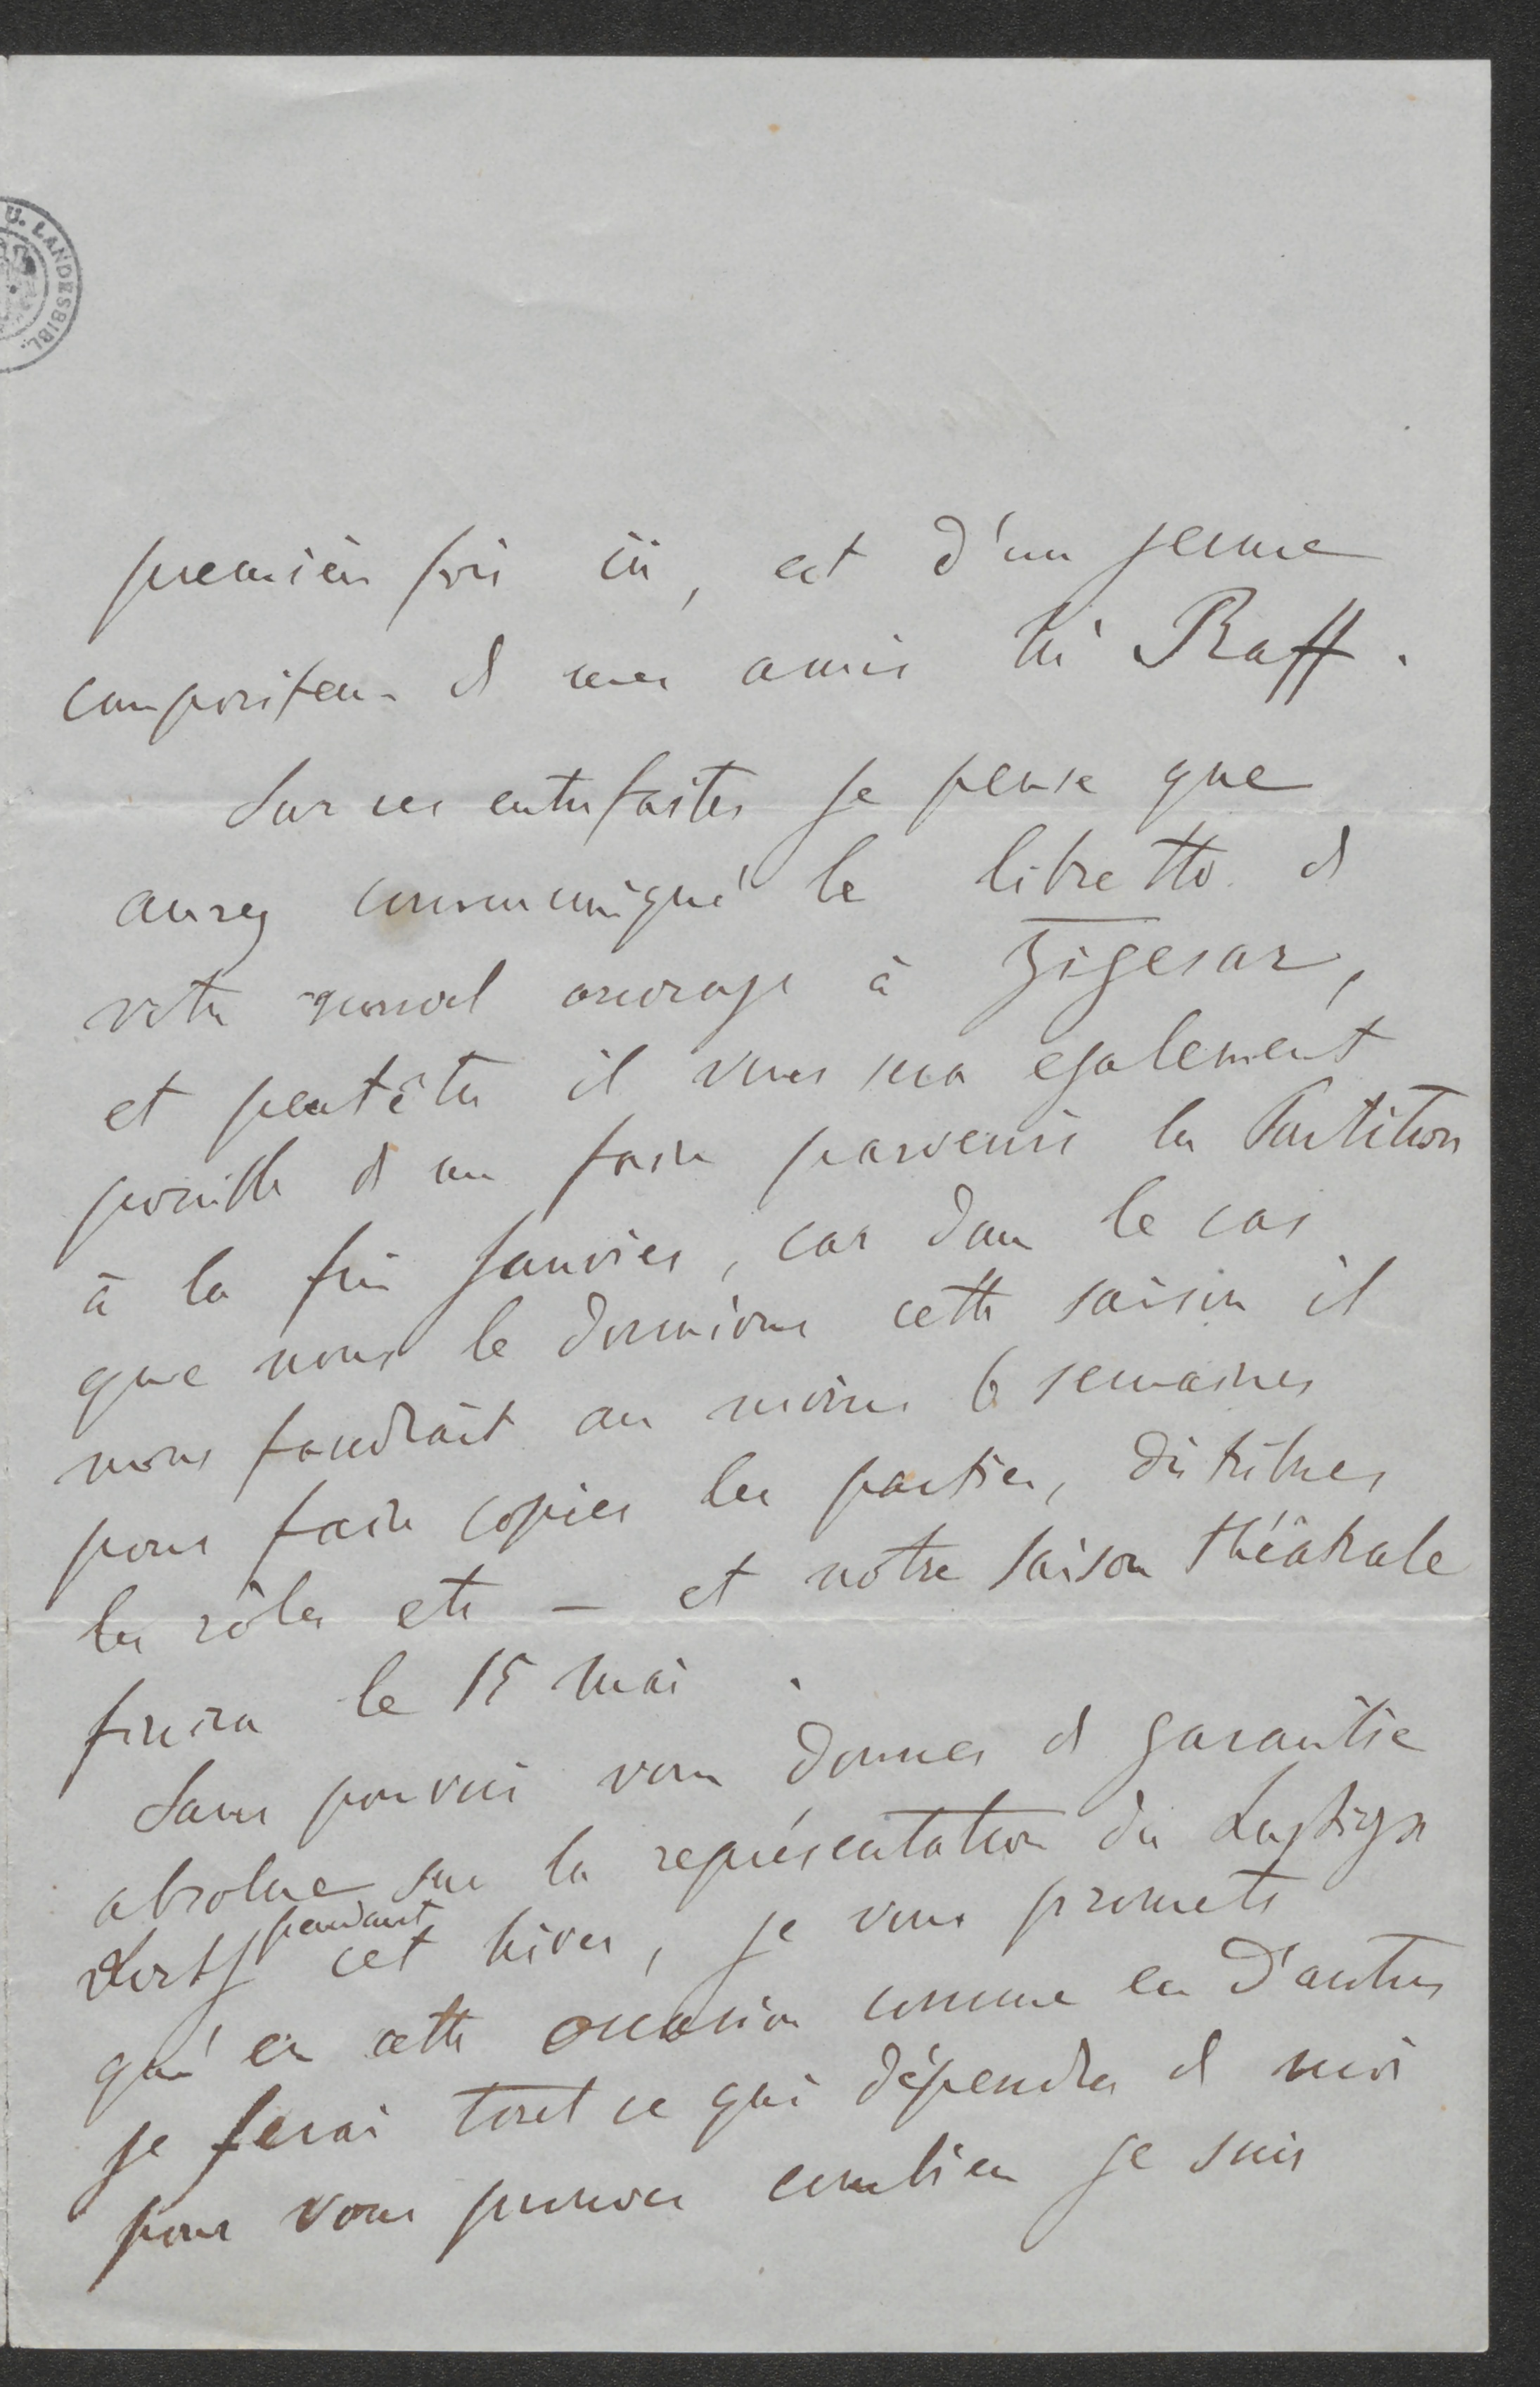 U. LANDESBIBL.
première fois ici, est d'un jeune
compositeur de mes amis Mr Raff.
Sur ces entrefaites je pense que
aurez communiqué le libretto de
votre nouvel ouvrage à Zigesar,
et peutêtre il vous sera egalement
possible de me faire parvenir la Partition
à la fin Janvier, car dans le cas
que nous le donnions cette saison il
nous faudrait au moins 6 semaines
pour faire copier les parties, distribuer
les rôles etc – et notre saison théâtrale
finira le 15 Mai.
Sans pouvoir vous donner de garantie
absolue sur la représentation du
pendant
cet hiver, je vous promets
qu'en cette occasion comme en d'autres
je ferai tout ce qui dépendra de moi
pour vous prouver combien je suis